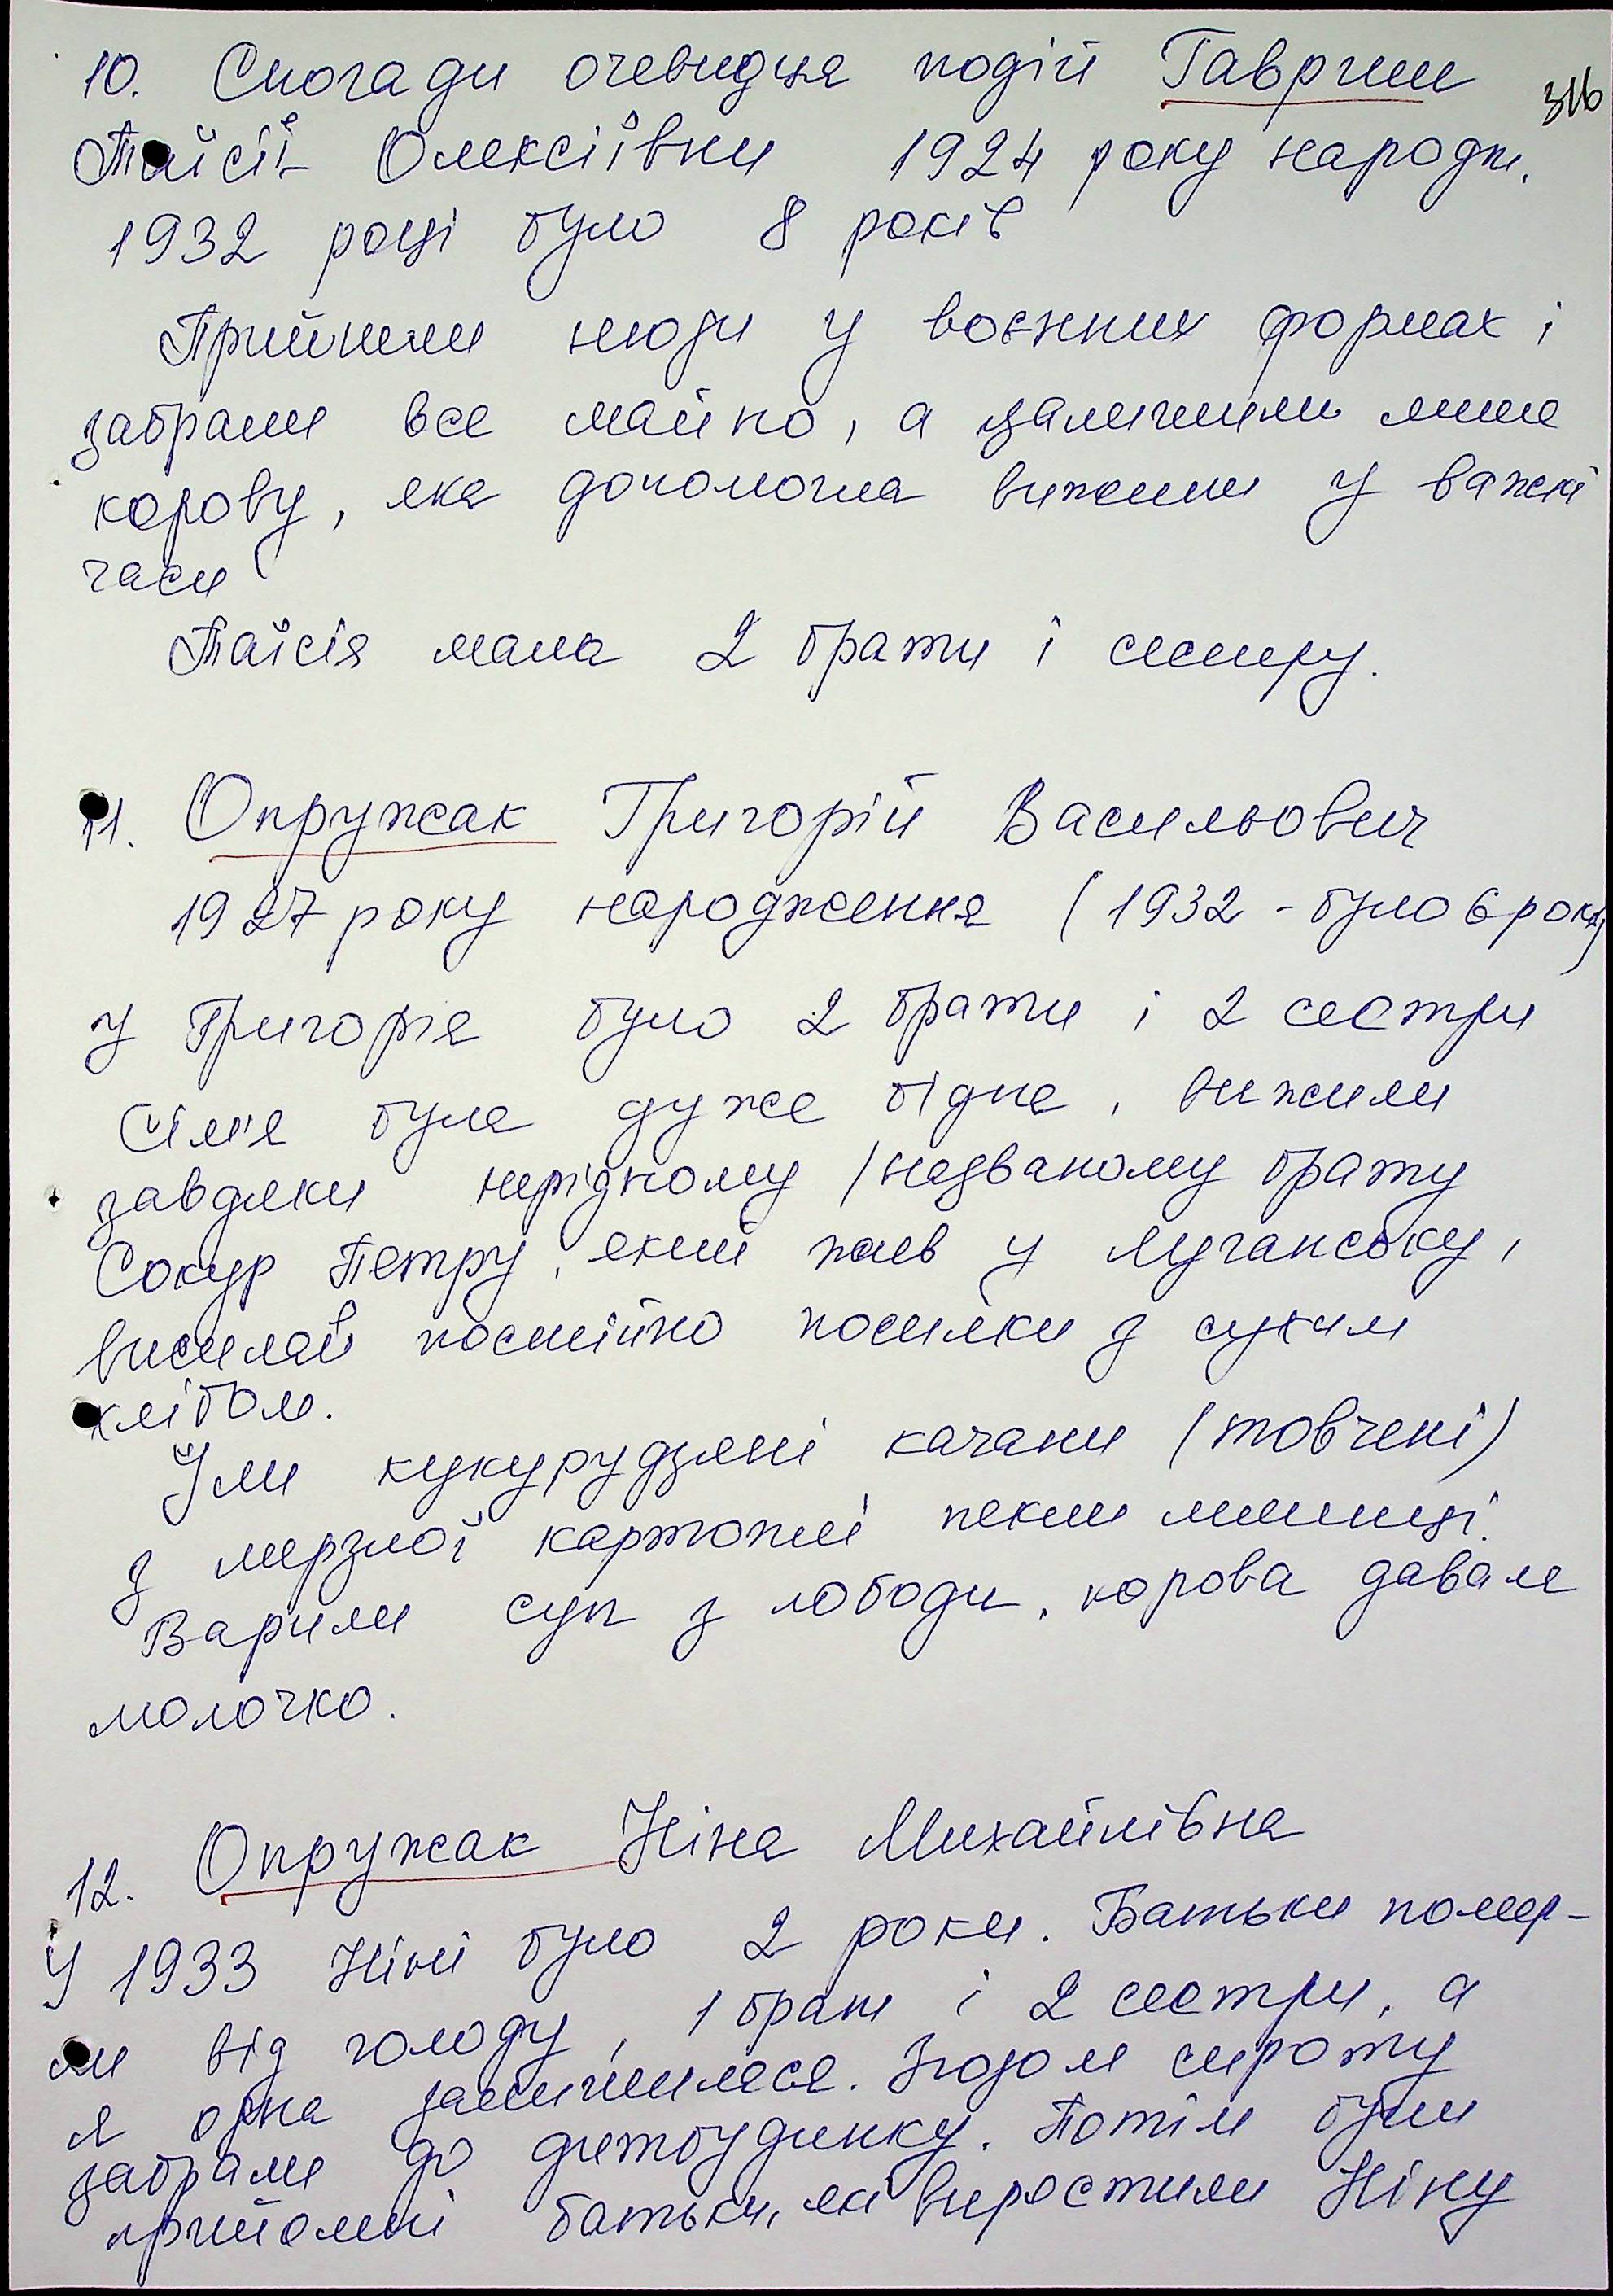 10. Спогади очевидця подій Гаврили 316
Таїсії Олексіївни 1924 року народж.
1932 році було 8 років
Прийшли люди у воєнних формах і
забрали все майно, а залишили лише
корову, яка допомогла вижити у важкі
часи
Таїсія мала 2 брати і сестру.
11. Опружак Григорій Васильович
1927 року народження (1932 - було 6 років)
У Григорія було 2 брати і 2 сестри
Сім'я була дуже бідна, вижили
завдяки нерідному /названому брату
Сокур Петру, який жив у Луганську,
висилав постійно посилки з сухим
хлібом.
Їли кукурудзяні качани (товчені)
з мерзлої картоплі пекли млинці.
Варили суп з лободи, корова давала
молочко.
12. Опружак Ніна Михайлівна
У 1933 Ніні було 2 роки. Батьки помер-
ли від голоду, 1 брат і 2 сестри, а
я одна залишилася. Згодом сироту
забрали до дитбудинку. Потім були
прийомні батьки, які виростили Ніну